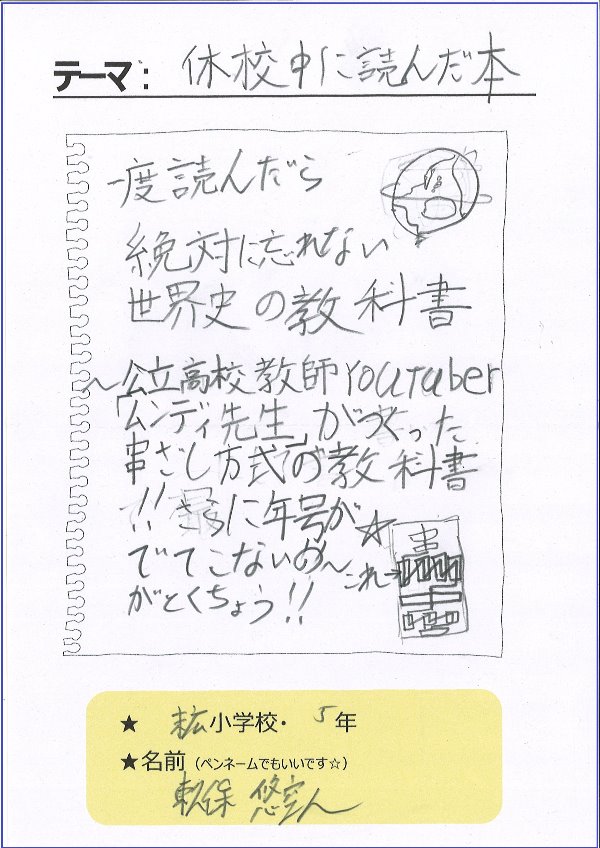 テーマ： 休校中に読んだ本
一度読んだら
絶対に忘れない
世界史の教科書
～公立高校教師Youtuber
「ムンディ先生」がつくった
串ざし方式の教科書
!! さらに年号が
でてこないの～
がとくちょう!!
これ→
★ 小学校・ 5年
★名前（ペンネームでもいいです☆）
悠空人